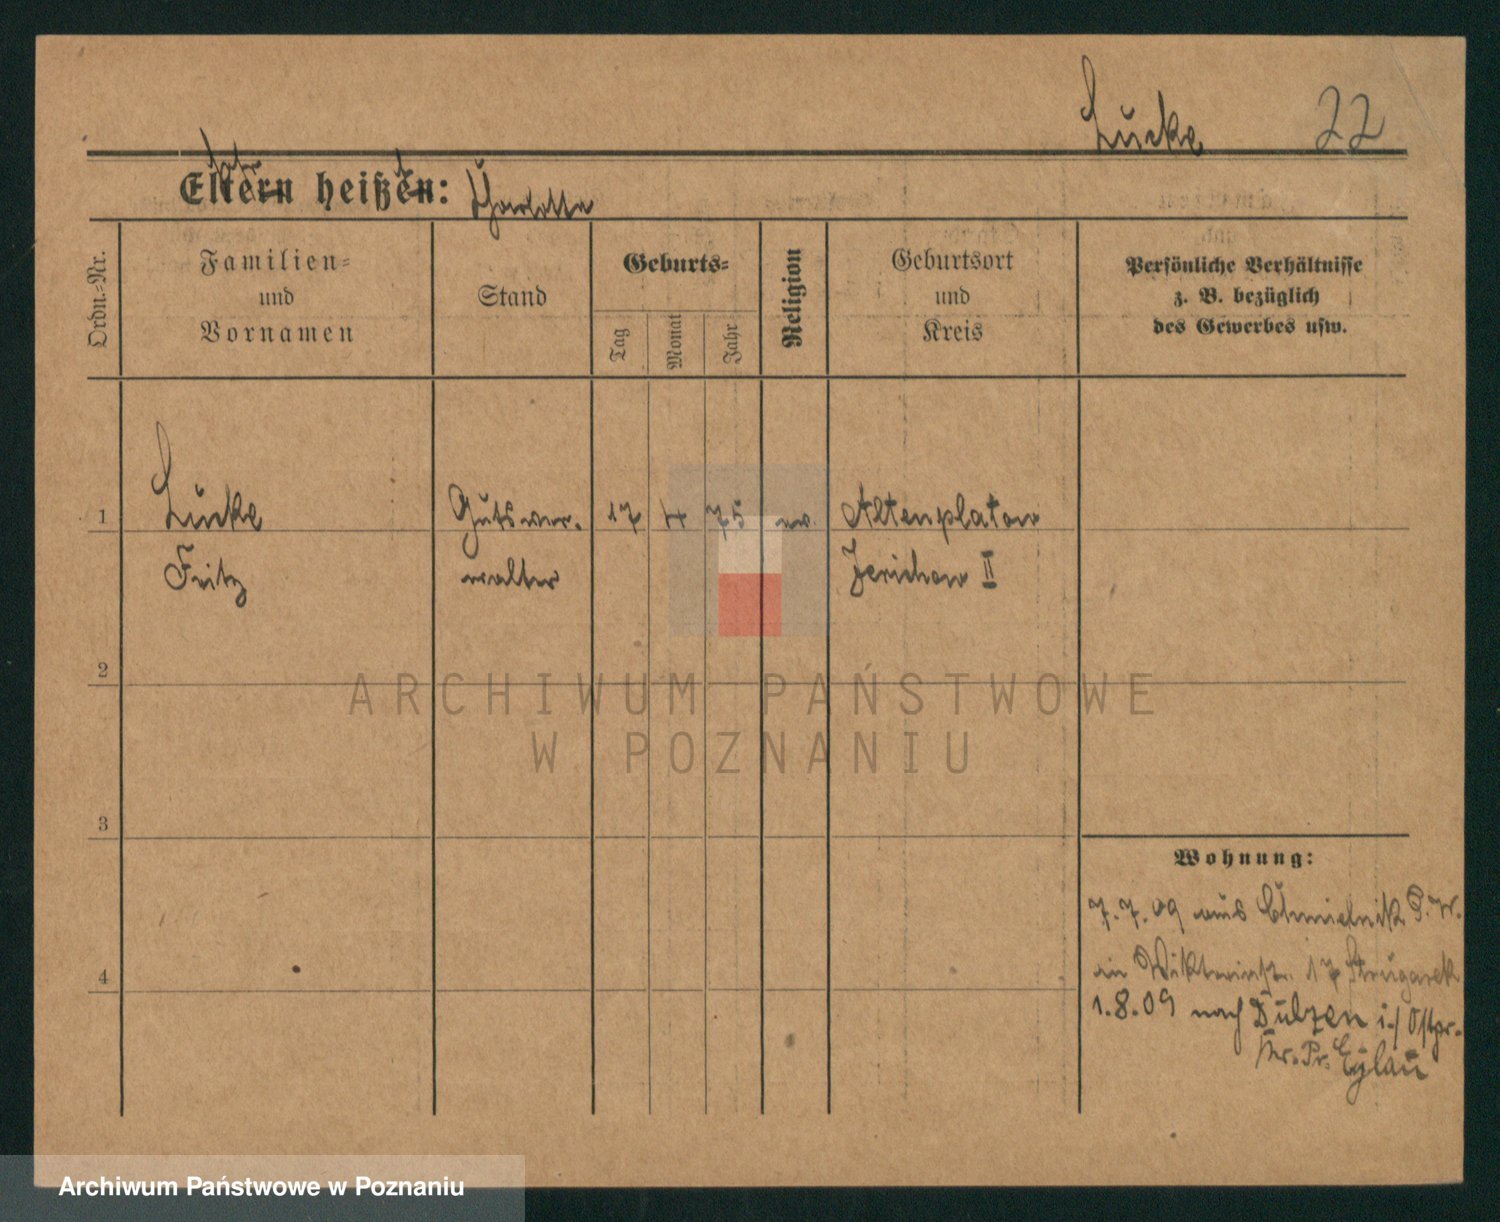 Lücke 22
Eltern heißen: Charlotte
Ordn.-Nr.
Familien-
und
Vornamen
Stand
Geburts-
Tag
Monat
Jahr
Religion
Geburtsort
und
Kreis
Persönliche Verhältnisse
z. B. bezüglich
des Gewerbes usw.
1
Lücke Gutsver- 17 4 75 ev. Altenplatow
Fritz walter Jerichow II
2
ARCHIWUM PAŃSTWOWE
W POZNANIU
3
Wohnung:
7.7.09 aus Chmielnik P. W.
in 17 Strugarek
4
1.8.09 nach Dulzen i./Ostpr.
Kr. Pr. Eylau
Archiwum Państwowe w Poznaniu